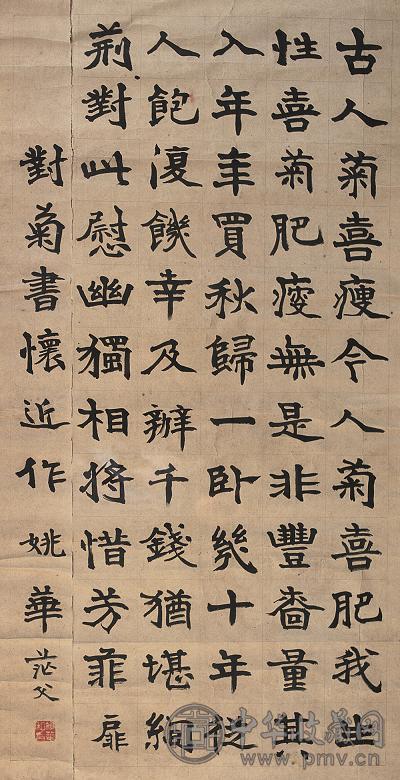 古人菊喜瘦今人菊喜肥我生
性喜菊肥瘦無是非豐嗇量其
入年年買秋歸一卧幾十年從
人飽復饑幸及辦千錢猶堪
荆對此慰幽獨相將惜芳菲扉
對菊書懷近作姚華茫父
中华收藏网
www.pmv.cn